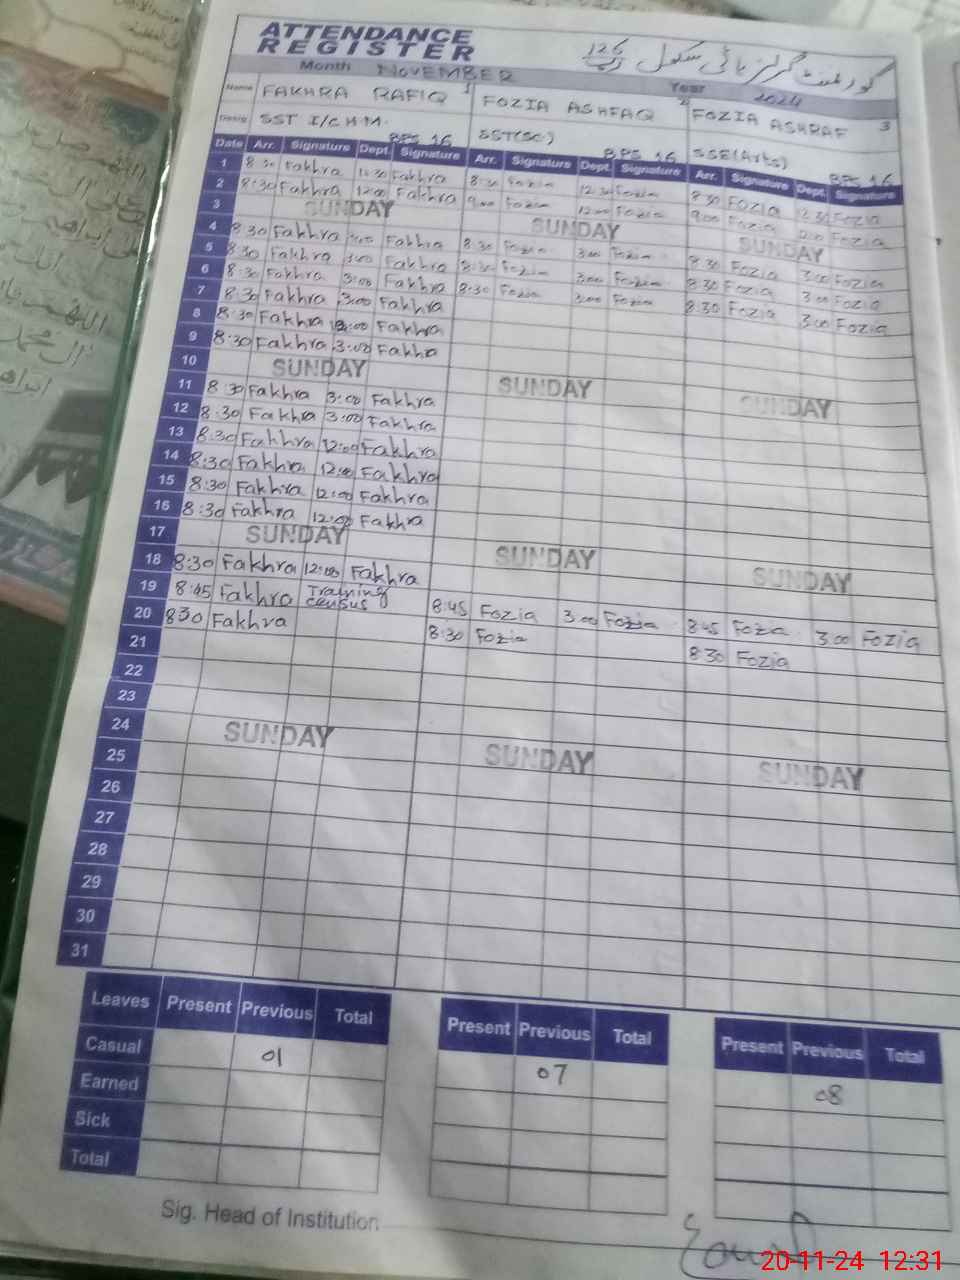 ATTENDANCE
REGISTER
گورنمنٹ گرلز ہائی سکول 125
Month NOVEMBER Year 2024
Name FAKHRA RAFIQ 1 FOZIA ASHFAQ 2 FOZIA ASHRAF 3
SST I/C H.M. BPS 16 SST(SC) BPS 16 SSE(Arts) BPS 16
Date Arr. Signature Dept. Signature Arr. Signature Dept. Signature Arr. Signature Dept. Signature
1 8:30 Fakhra 12:30 Fakhra 8:30 Fozia 12:30 Fozia 8:30 Fozia 12:30 Fozia
2 8:30 Fakhra 12:00 Fakhra 9:00 Fozia 12:00 Fozia 9:00 Fozia 12:00 Fozia
3 SUNDAY SUNDAY SUNDAY
4 8:30 Fakhra 3:00 Fakhra 8:30 Fozia 3:00 Fozia 8:30 Fozia 3:00 Fozia
5 8:30 Fakhra 3:00 Fakhra 8:30 Fozia 3:00 Fozia 8:30 Fozia 3:00 Fozia
6 8:30 Fakhra 3:00 Fakhra 8:30 Fozia 3:00 Fozia 8:30 Fozia 3:00 Fozia
7 8:30 Fakhra 3:00 Fakhra
8 8:30 Fakhra 12:00 Fakhra
9 8:30 Fakhra 3:00 Fakhra
10 SUNDAY SUNDAY SUNDAY
11 8:30 Fakhra 3:00 Fakhra
12 8:30 Fakhra 3:00 Fakhra
13 8:30 Fakhra 12:00 Fakhra
14 8:30 Fakhra 12:00 Fakhra
15 8:30 Fakhra 12:00 Fakhra
16 8:30 Fakhra 12:00 Fakhra
17 SUNDAY SUNDAY SUNDAY
18 8:30 Fakhra 12:00 Fakhra
19 8:45 Fakhra Training census 8:45 Fozia 3:00 Fozia 8:45 Fozia 3:00 Fozia
20 8:30 Fakhra 8:30 Fozia 8:30 Fozia
21
22
23
24 SUNDAY SUNDAY SUNDAY
25
26
27
28
29
30
31
Leaves Present Previous Total Present Previous Total Present Previous Total
Casual 01 07 08
Earned
Sick
Total
Sig. Head of Institution
20-11-24 12:31